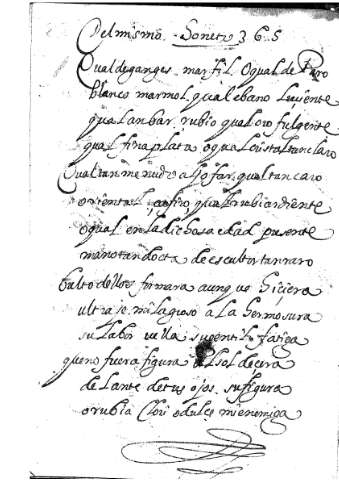 Del mismo. Soneto 365
Qual de ganges marfil o qual de Paro
blanco marmol, qual ebano luciente
qual anbar rubio qual oro fulgente
qual fina plata o qual cristal tan claro
Qual tan menudo aljofar, qual tan caro
oriental çafiro qual rubi ardiente
o qual en la dichosa edad presente
mano tan docta de escultor tan raro
bulto dellos formara aunque hiciera
ultraje milagroso a la hermosura
su labor vella su gentil fatiga
que no fuera figura al sol de çera
delante de tus ojos su figura
o rubia Clori o dulce mi enemiga